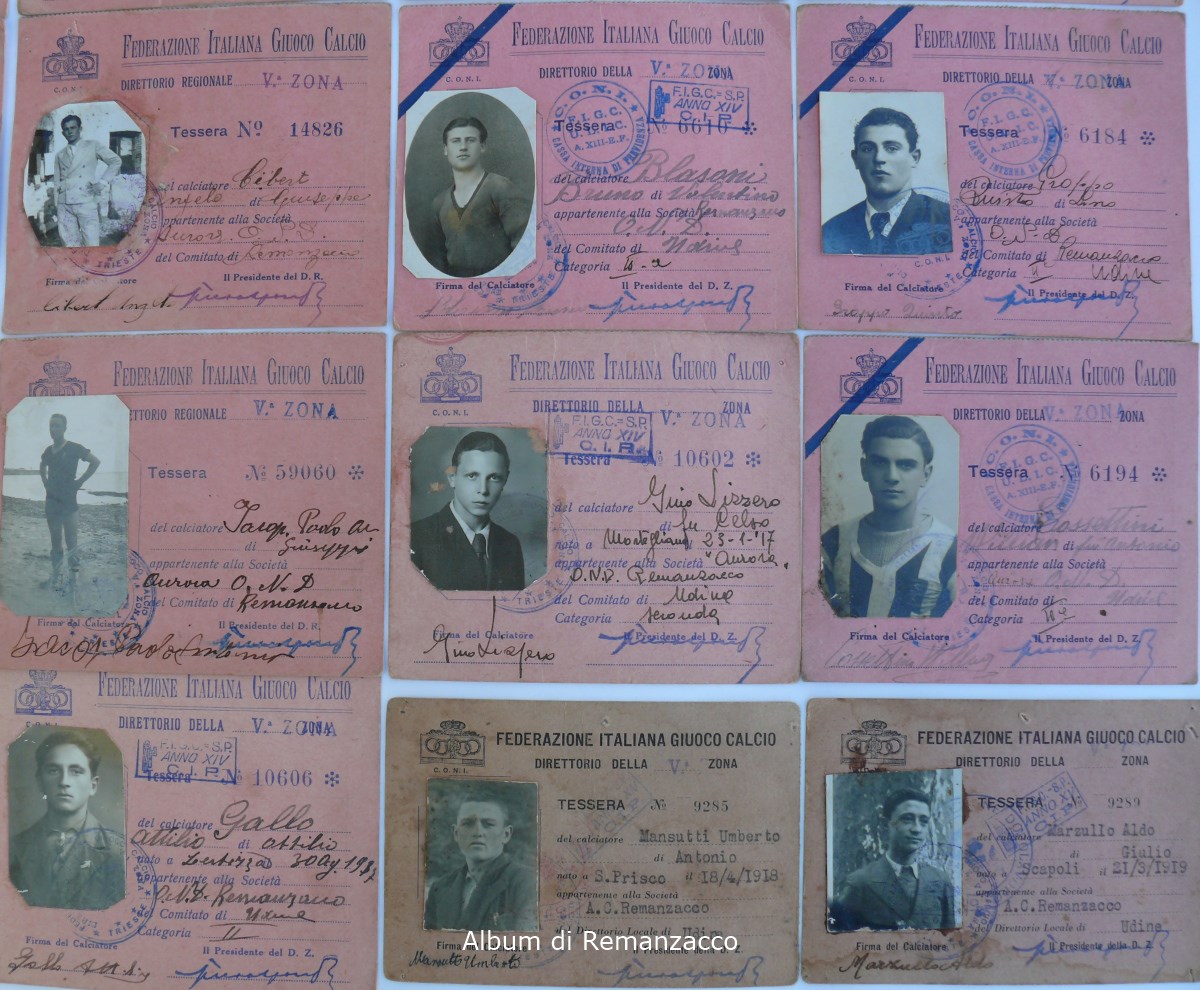 FEDERAZIONE ITALIANA GIUOCO CALCIO
C.O.N.I.
DIRETTORIO REGIONALE V.ª ZONA
Tessera Nº 14826
del calciatore Cibert
Angelo di Giuseppe
appartenente alla Società
Aurora O.N.D.
del Comitato di Remanzacco
Firma del Calciatore Il Presidente del D. R.
FEDERAZIONE ITALIANA GIUOCO CALCIO
C.O.N.I.
DIRETTORIO DELLA V.ª ZONA ZONA
F.I.G.C.=S.P.
ANNO XIV
C.I.P.
C.O.N.I.
F.I.G.C.
A. XIII-E.F.
CASSA INTERNA DI PREVIDENZA
Tessera Nº 6610 *
del calciatore Blasoni
Bruno di Valentino
appartenente alla Società Remanzacco
O.N.D.
del Comitato di Udine
Categoria II-a
Firma del Calciatore Il Presidente del D. Z.
FEDERAZIONE ITALIANA GIUOCO CALCIO
C.O.N.I.
DIRETTORIO DELLA V.ª ZONA ZONA
C.O.N.I.
F.I.G.C.
A. XIII-E.F.
CASSA INTERNA DI PREVIDENZA
Tessera 6184 *
del calciatore Groppo
Quinto di Lino
appartenente alla Società
O.N.D. Remanzacco
del Comitato di Udine
Categoria II
Firma del Calciatore Il Presidente del D. Z.
Groppo Quinto
FEDERAZIONE ITALIANA GIUOCO CALCIO
DIRETTORIO REGIONALE V.ª ZONA
Tessera Nº 59060 *
del calciatore Paolo
di Giuseppe
appartenente alla Società
Aurora O.N.D
del Comitato di Remanzacco
Firma del Calciatore Il Presidente del D. R.
FEDERAZIONE ITALIANA GIUOCO CALCIO
C.O.N.I.
DIRETTORIO DELLA V.ª ZONA ZONA
F.I.G.C.=S.P.
ANNO XIV
C.I.P.
Tessera Nº 10602 *
del calciatore Gino Lizzero
di fu Celso
nato a Mortegliano 23-1-'17
appartenente alla Società "Aurora"
O.N.D. Remanzacco
del Comitato di Udine
Categoria seconda
Firma del Calciatore Il Presidente del D. Z.
Gino Lizzero
FEDERAZIONE ITALIANA GIUOCO CALCIO
DIRETTORIO DELLA V.ª ZONA ZONA
C.O.N.I.
F.I.G.C.
A. XIII-E.F.
Tessera Nº 6194 *
del calciatore Cossettini
di fu Antonio
appartenente alla Società
Aurora O.N.D.
del Comitato di Udine
Categoria IIª
Firma del Calciatore Il Presidente del D. Z.
FEDERAZIONE ITALIANA GIUOCO CALCIO
DIRETTORIO DELLA V.ª ZONA ZONA
F.I.G.C.=S.P.
ANNO XIV
C.I.P.
Tessera Nº 10606 *
del calciatore Gallo
Attilio di Attilio
nato a
appartenente alla Società
O.N.D. Remanzacco
del Comitato di Udine
Categoria II
Firma del Calciatore Il Presidente del D. Z.
Gallo Attilio
FEDERAZIONE ITALIANA GIUOCO CALCIO
C.O.N.I.
DIRETTORIO DELLA V.ª ZONA
TESSERA Nº 9285
del calciatore Mansutti Umberto
di Antonio
nato a S.Prisco il 18/4/1918
appartenente alla Società
A.C.Remanzacco
del Direttorio Locale di Udine
Firma del Calciatore Il Presidente del D. Z.
Mansutti Umberto
FEDERAZIONE ITALIANA GIUOCO CALCIO
DIRETTORIO DELLA ZONA
TESSERA Nº 9289
del calciatore Marzullo Aldo
di Giulio
nato a Scapoli il 21/3/1919
appartenente alla Società
A.C.Remanzacco
del Direttorio Locale di Udine
Firma del Calciatore Il Presidente del D. Z.
Marzullo Aldo
Album di Remanzacco